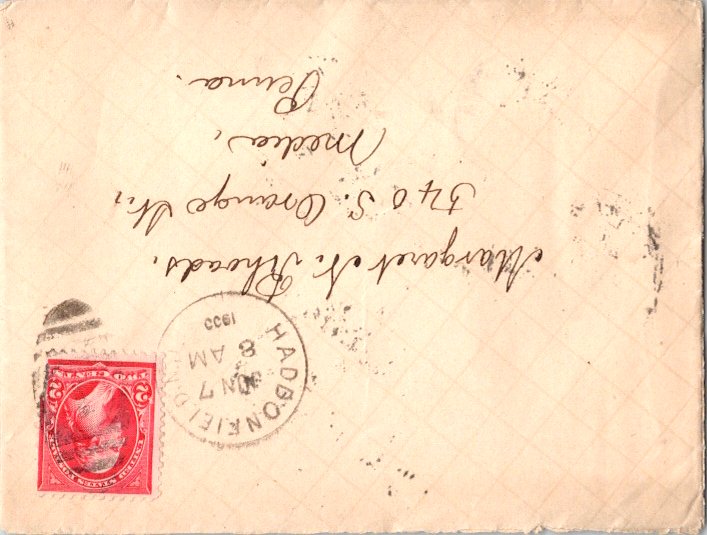 Margaret N. Rhoads,
340 S. Orange St.,
Media,
Penna.
HADDONFIELD, N.J.
JUN 7
8 AM
1900
UNITED STATES POSTAGE
2 2
TWO CENTS